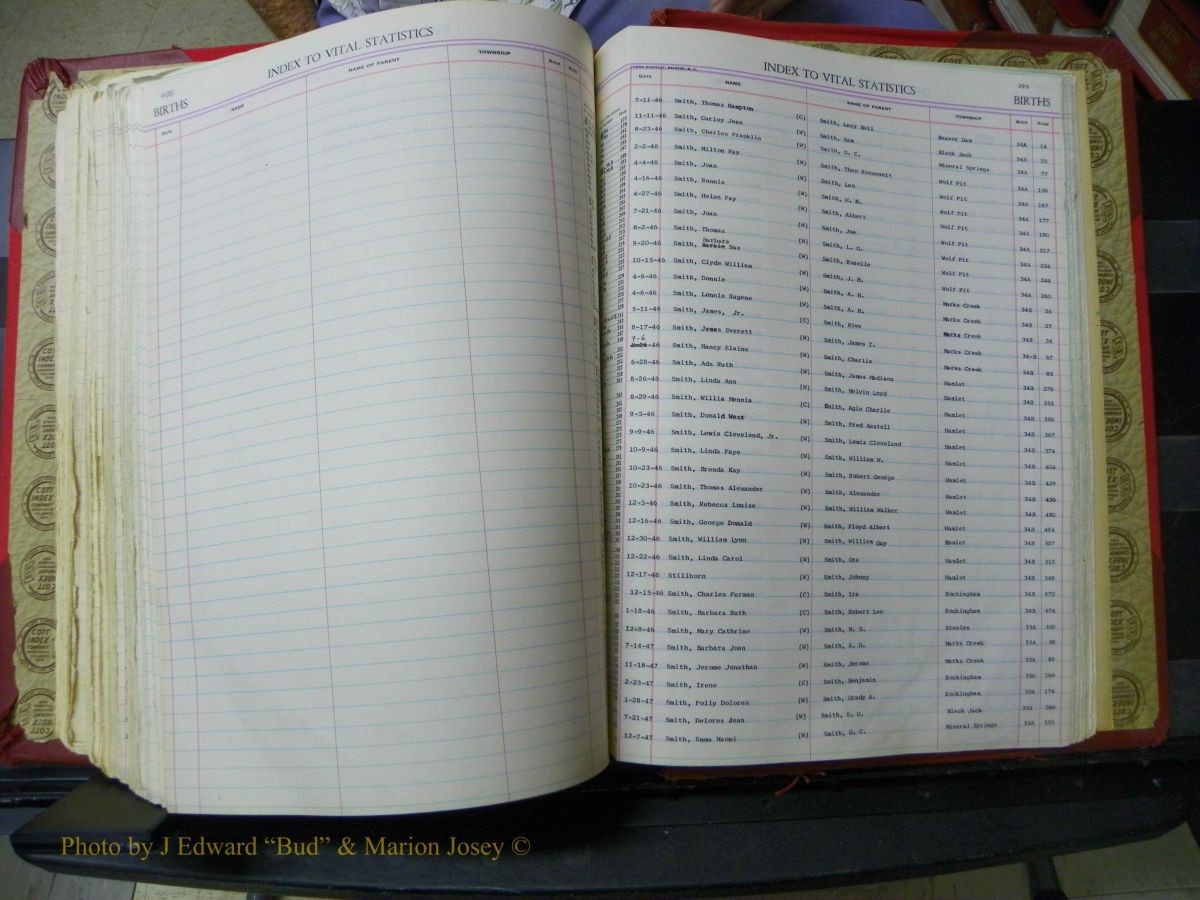 INDEX TO VITAL STATISTICS
BIRTHS
Date NAME NAME OF PARENT TOWNSHIP Book Page
INDEX TO VITAL STATISTICS 393
BIRTHS
Date NAME NAME OF PARENT TOWNSHIP Book Page
7-11-46 Smith, Thomas Hampton (C) Smith, Lucy Bell Beaver Dam 34A 14
11-11-46 Smith, Curley Jean (W) Smith, Sam Black Jack 34A 33
8-23-46 Smith, Charles Franklin (W) Smith, G. C. Mineral Springs 34A 77
2-2-46 Smith, Milton Ray (W) Smith, Theo Roosevelt Wolf Pit 34A 156
4-4-46 Smith, Joan (W) Smith, Leo Wolf Pit 34A 167
4-16-46 Smith, Ronnie (W) Smith, H. H. Wolf Pit 34A 177
4-27-46 Smith, Helen Fay (W) Smith, Albert Wolf Pit 34A 180
7-21-46 Smith, Joan (W) Smith, Joe Wolf Pit 34A 217
8-2-46 Smith, Thomas (W) Smith, L. G. Wolf Pit 34A 224
9-20-46 Smith, Barbara Sue (W) Smith, Rozelle Wolf Pit 34A 244
10-15-46 Smith, Clyde William (W) Smith, J. H. Wolf Pit 34A 260
4-6-46 Smith, Donnie (W) Smith, A. H. Marks Creek 34B 26
4-6-46 Smith, Lonnie Eugene (W) Smith, A. H. Marks Creek 34B 27
5-11-46 Smith, James, Jr. (C) Smith, Riva Marks Creek 34B 34
8-17-46 Smith, James Everett (W) Smith, James T. Marks Creek 34-B 67
9-6-46 Smith, Nancy Elaine (W) Smith, Charlie Marks Creek 34B 83
6-28-46 Smith, Ada Ruth (W) Smith, James Madison Hamlet 34B 279
8-26-46 Smith, Linda Ann (W) Smith, Melvin Loyd Hamlet 34B 355
8-29-46 Smith, Willia Mennia (C) Smith, Agie Charlie Hamlet 34B 359
9-5-46 Smith, Donald West (W) Smith, Fred Austell Hamlet 34B 367
9-9-46 Smith, Lewis Cleveland, Jr. (W) Smith, Lewis Cleveland Hamlet 34B 374
10-9-46 Smith, Linda Faye (W) Smith, William H. Hamlet 34B 404
10-23-46 Smith, Brenda Kay (W) Smith, Robert George Hamlet 34B 429
10-23-46 Smith, Thomas Alexander (W) Smith, Alexander Hamlet 34B 430
12-5-46 Smith, Rebecca Louise (W) Smith, William Walker Hamlet 34B 480
12-16-46 Smith, George Donald (W) Smith, Floyd Albert Hamlet 34B 484
12-30-46 Smith, William Lynn (W) Smith, William Guy Hamlet 34B 507
12-22-46 Smith, Linda Carol (W) Smith, Ora Hamlet 34B 515
12-17-46 Stillborn (W) Smith, Johnny Hamlet 34B 548
12-15-46 Smith, Charles Furman (C) Smith, Ira Rockingham 34B 672
1-18-46 Smith, Barbara Ruth (C) Smith, Robert Lee Rockingham 34B 674
12-8-46 Smith, Mary Cathrine (W) Smith, M. S. Steeles 35A 339
7-14-47 Smith, Barbara Joan (W) Smith, A. H. Marks Creek 35A 38
11-18-47 Smith, Jerome Jonathan (W) Smith, Jerome Marks Creek 35A 89
2-23-47 Smith, Irene (C) Smith, Benjamin Rockingham 35A 166
1-28-47 Smith, Polly Dolores (W) Smith, Grady A. Rockingham 35A 174
7-21-47 Smith, Delores Jean (W) Smith, E. D. Black Jack 35A 280
12-7-47 Smith, Emma Naomi (W) Smith, G. C. Mineral Springs 35A 355
Photo by J Edward “Bud” & Marion Josey ©